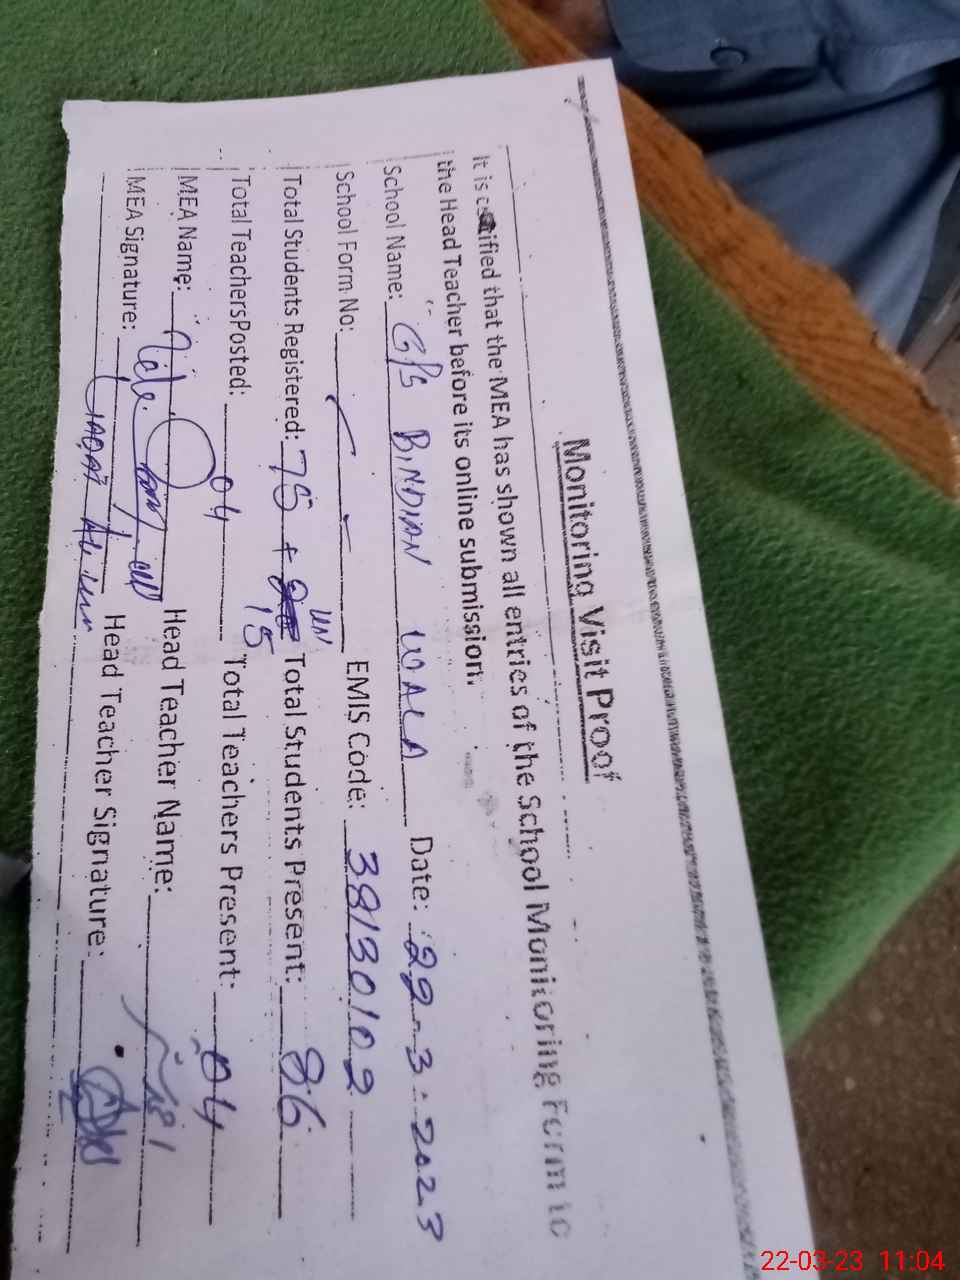 Monitoring Visit Proof
It is certified that the MEA has shown all entries of the School Monitoring Form to
the Head Teacher before its online submission.
School Name: GPS BINDIAN WALA Date: 22-3-2023
School Form No: EMIS Code: 38130102
Total Students Registered: 75 + 15 UN Total Students Present: 86
Total TeachersPosted: 04 Total Teachers Present: 04
MEA Name: Head Teacher Name:
MEA Signature: Head Teacher Signature:
22-03-23 11:04